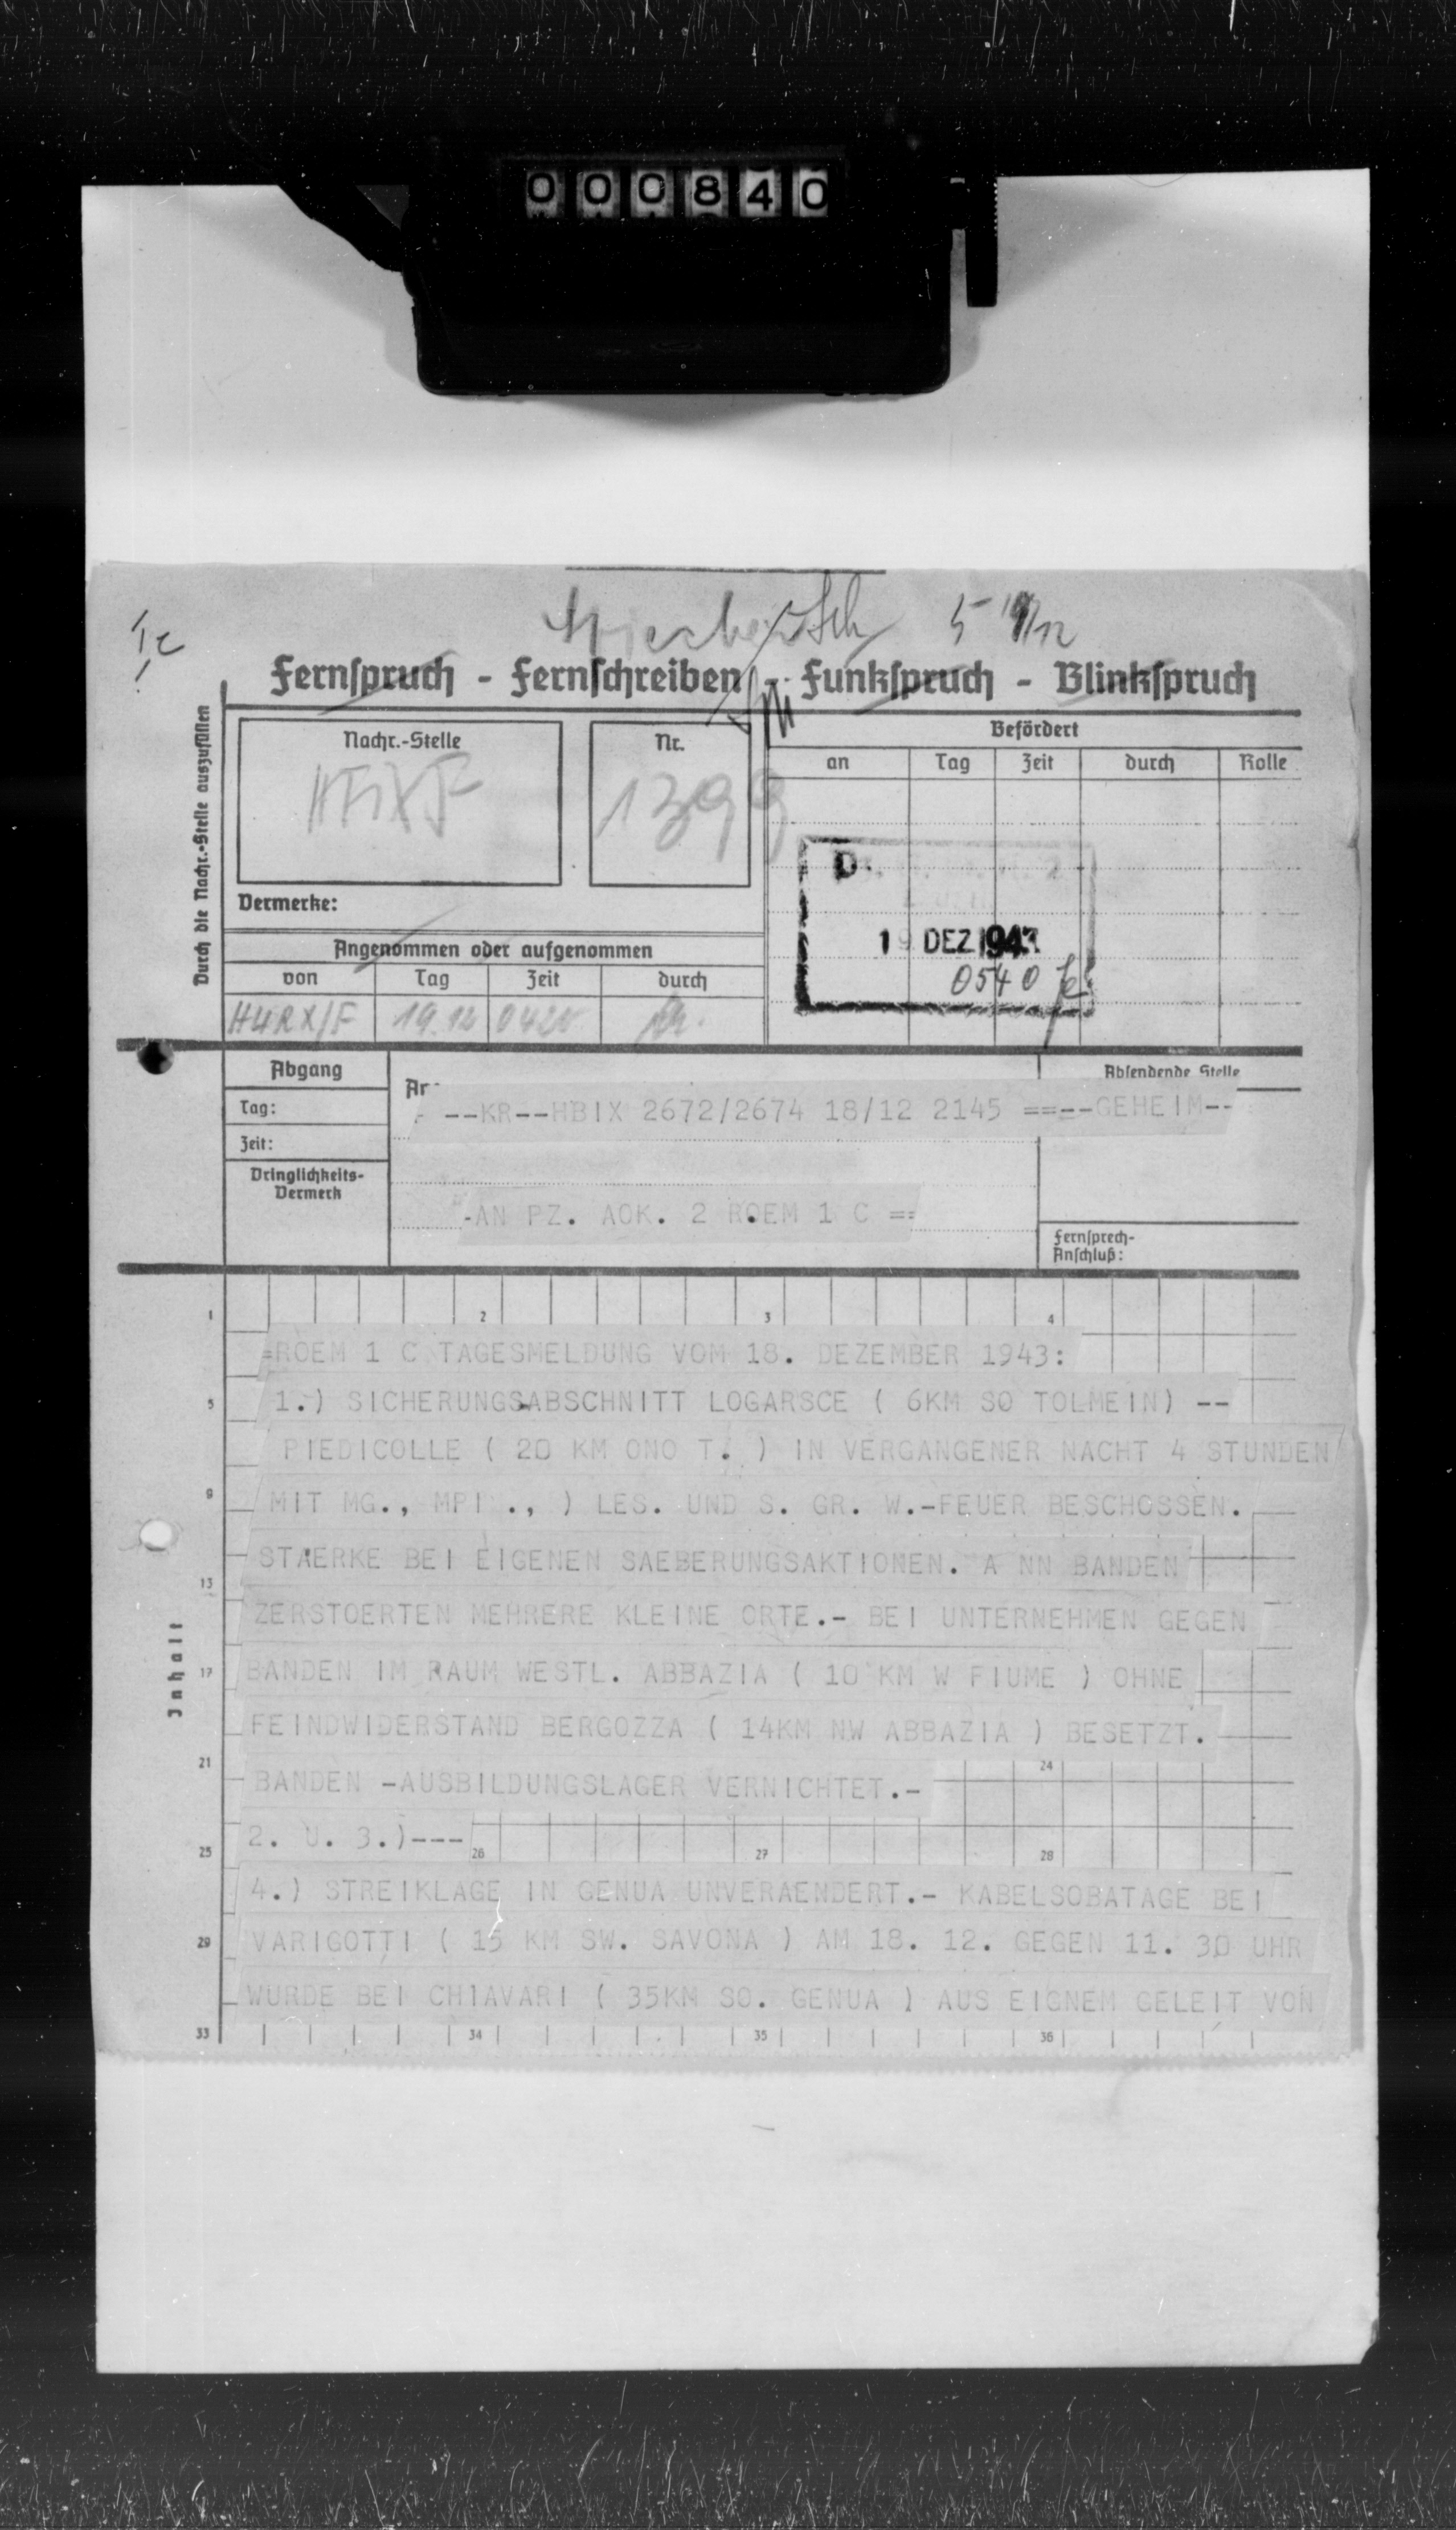 000840
Ic
5 19/12
Fernspruch - Fernschreiben - Funkspruch - Blinkspruch
Durch die Nachr.-Stelle auszufüllen
Nachr.-Stelle
Nr.
1399
Befördert
an Tag Zeit durch Rolle
Vermerke:
Angenommen oder aufgenommen
von Tag Zeit durch
19.12
19 DEZ 1943
0540
Abgang
Tag:
Zeit:
Dringlichkeits-
Vermerk
Absendende Stelle
--KR--HBIX 2672/2674 18/12 2145 ==--GEHEIM--
-AN PZ. AOK. 2 ROEM 1 C ==
Fernsprech-
Anschluß:
1 2 3 4
=ROEM 1 C TAGESMELDUNG VOM 18. DEZEMBER 1943:
5
1.) SICHERUNGSABSCHNITT LOGARSCE ( 6KM SO TOLMEIN) --
PIEDICOLLE ( 20 KM ONO T. ) IN VERGANGENER NACHT 4 STUNDEN
9
MIT MG., MPI ., ) LES. UND S. GR. W.-FEUER BESCHOSSEN.
STAERKE BEI EIGENEN SAEBERUNGSAKTIONEN. A NN BANDEN
13
ZERSTOERTEN MEHRERE KLEINE ORTE.- BEI UNTERNEHMEN GEGEN
Inhalt
17
BANDEN IM RAUM WESTL. ABBAZIA ( 10 KM W FIUME ) OHNE
FEINDWIDERSTAND BERGOZZA ( 14KM NW ABBAZIA ) BESETZT.
21 24
BANDEN -AUSBILDUNGSLAGER VERNICHTET.-
2. U. 3.)---
25 26 27 28
4.) STREIKLAGE IN GENUA UNVERAENDERT.- KABELSOBATAGE BEI
29
VARIGOTTI ( 15 KM SW. SAVONA ) AM 18. 12. GEGEN 11. 30 UHR
WURDE BEI CHIAVARI ( 35KM SO. GENUA ) AUS EIGNEM GELEIT VON
33 34 35 36